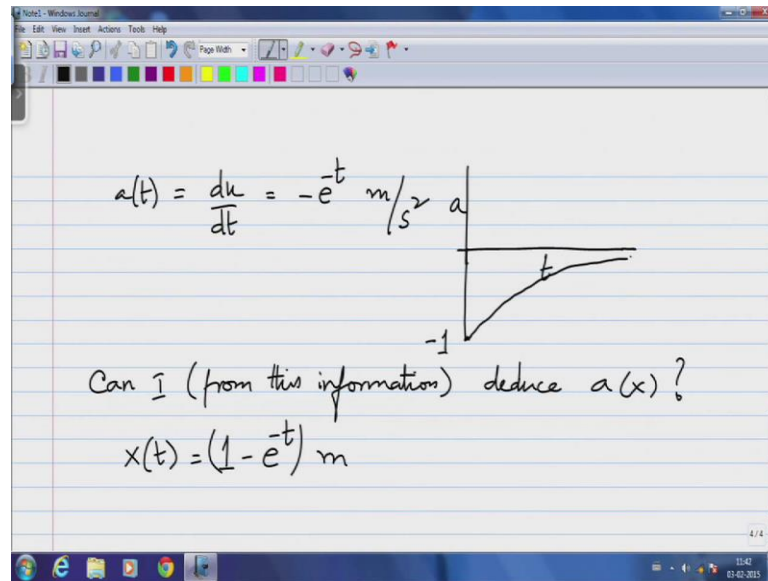 Note1 - Windows Journal
File Edit View Insert Actions Tools Help
Page Width
a(t) = du/dt = -e^-t m/s^2
a
t
-1
Can I (from this information) deduce a(x)?
x(t) = (1 - e^-t) m
4/4
11:42
03-02-2015